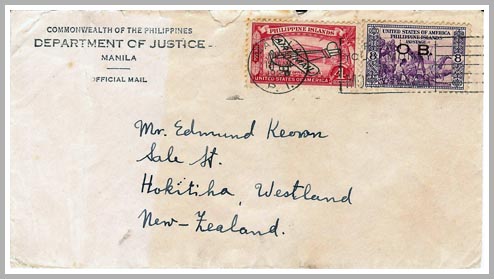 COMMONWEALTH OF THE PHILIPPINES
DEPARTMENT OF JUSTICE
MANILA
OFFICIAL MAIL
PHILIPPINE ISLANDS
UNITED STATES OF AMERICA
UNITED STATES OF AMERICA
PHILIPPINE ISLANDS
O.B.
8 8
Mr. Edmund Keown
Sale St.
Hokitiha, Westland
New-Zealand.